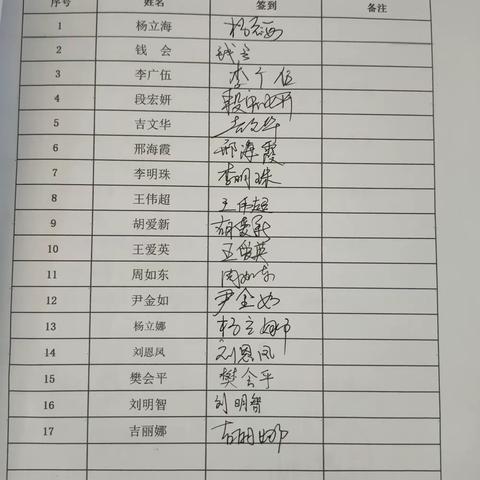 序号 姓名 签到 备注
1 杨立海 杨立海
2 钱会 钱会
3 李广伍 李广伍
4 段宏妍 段宏妍
5 吉文华 吉文华
6 邢海霞 邢海霞
7 李明珠 李明珠
8 王伟超 王伟超
9 胡爱新 胡爱新
10 王爱英 王爱英
11 周如东 周如东
12 尹金如 尹金如
13 杨立娜 杨立娜
14 刘恩凤 刘恩凤
15 樊会平 樊会平
16 刘明智 刘明智
17 吉丽娜 吉丽娜